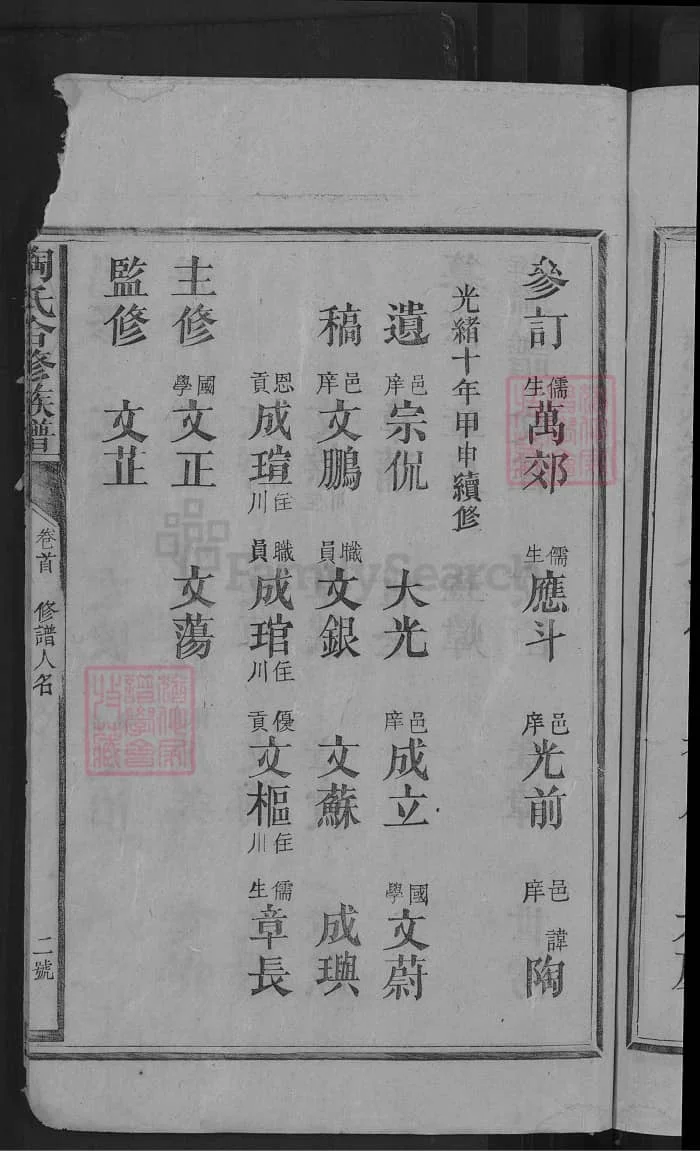 參訂 儒生萬郊 儒生應斗 邑庠光前 邑庠諱陶
光緒十年甲申續修
遺 邑庠宗侃 大光 邑庠成立 國學文蔚
稿 邑庠文鵬 職員文銀 文蘇 成璵
恩貢成瑄住川 職員成琯住川 優貢文樞住川 儒生章長
主修 國學文正 文蕩
監修 文芷
陶氏合修族譜
卷首 修譜人名
二號
FamilySearch